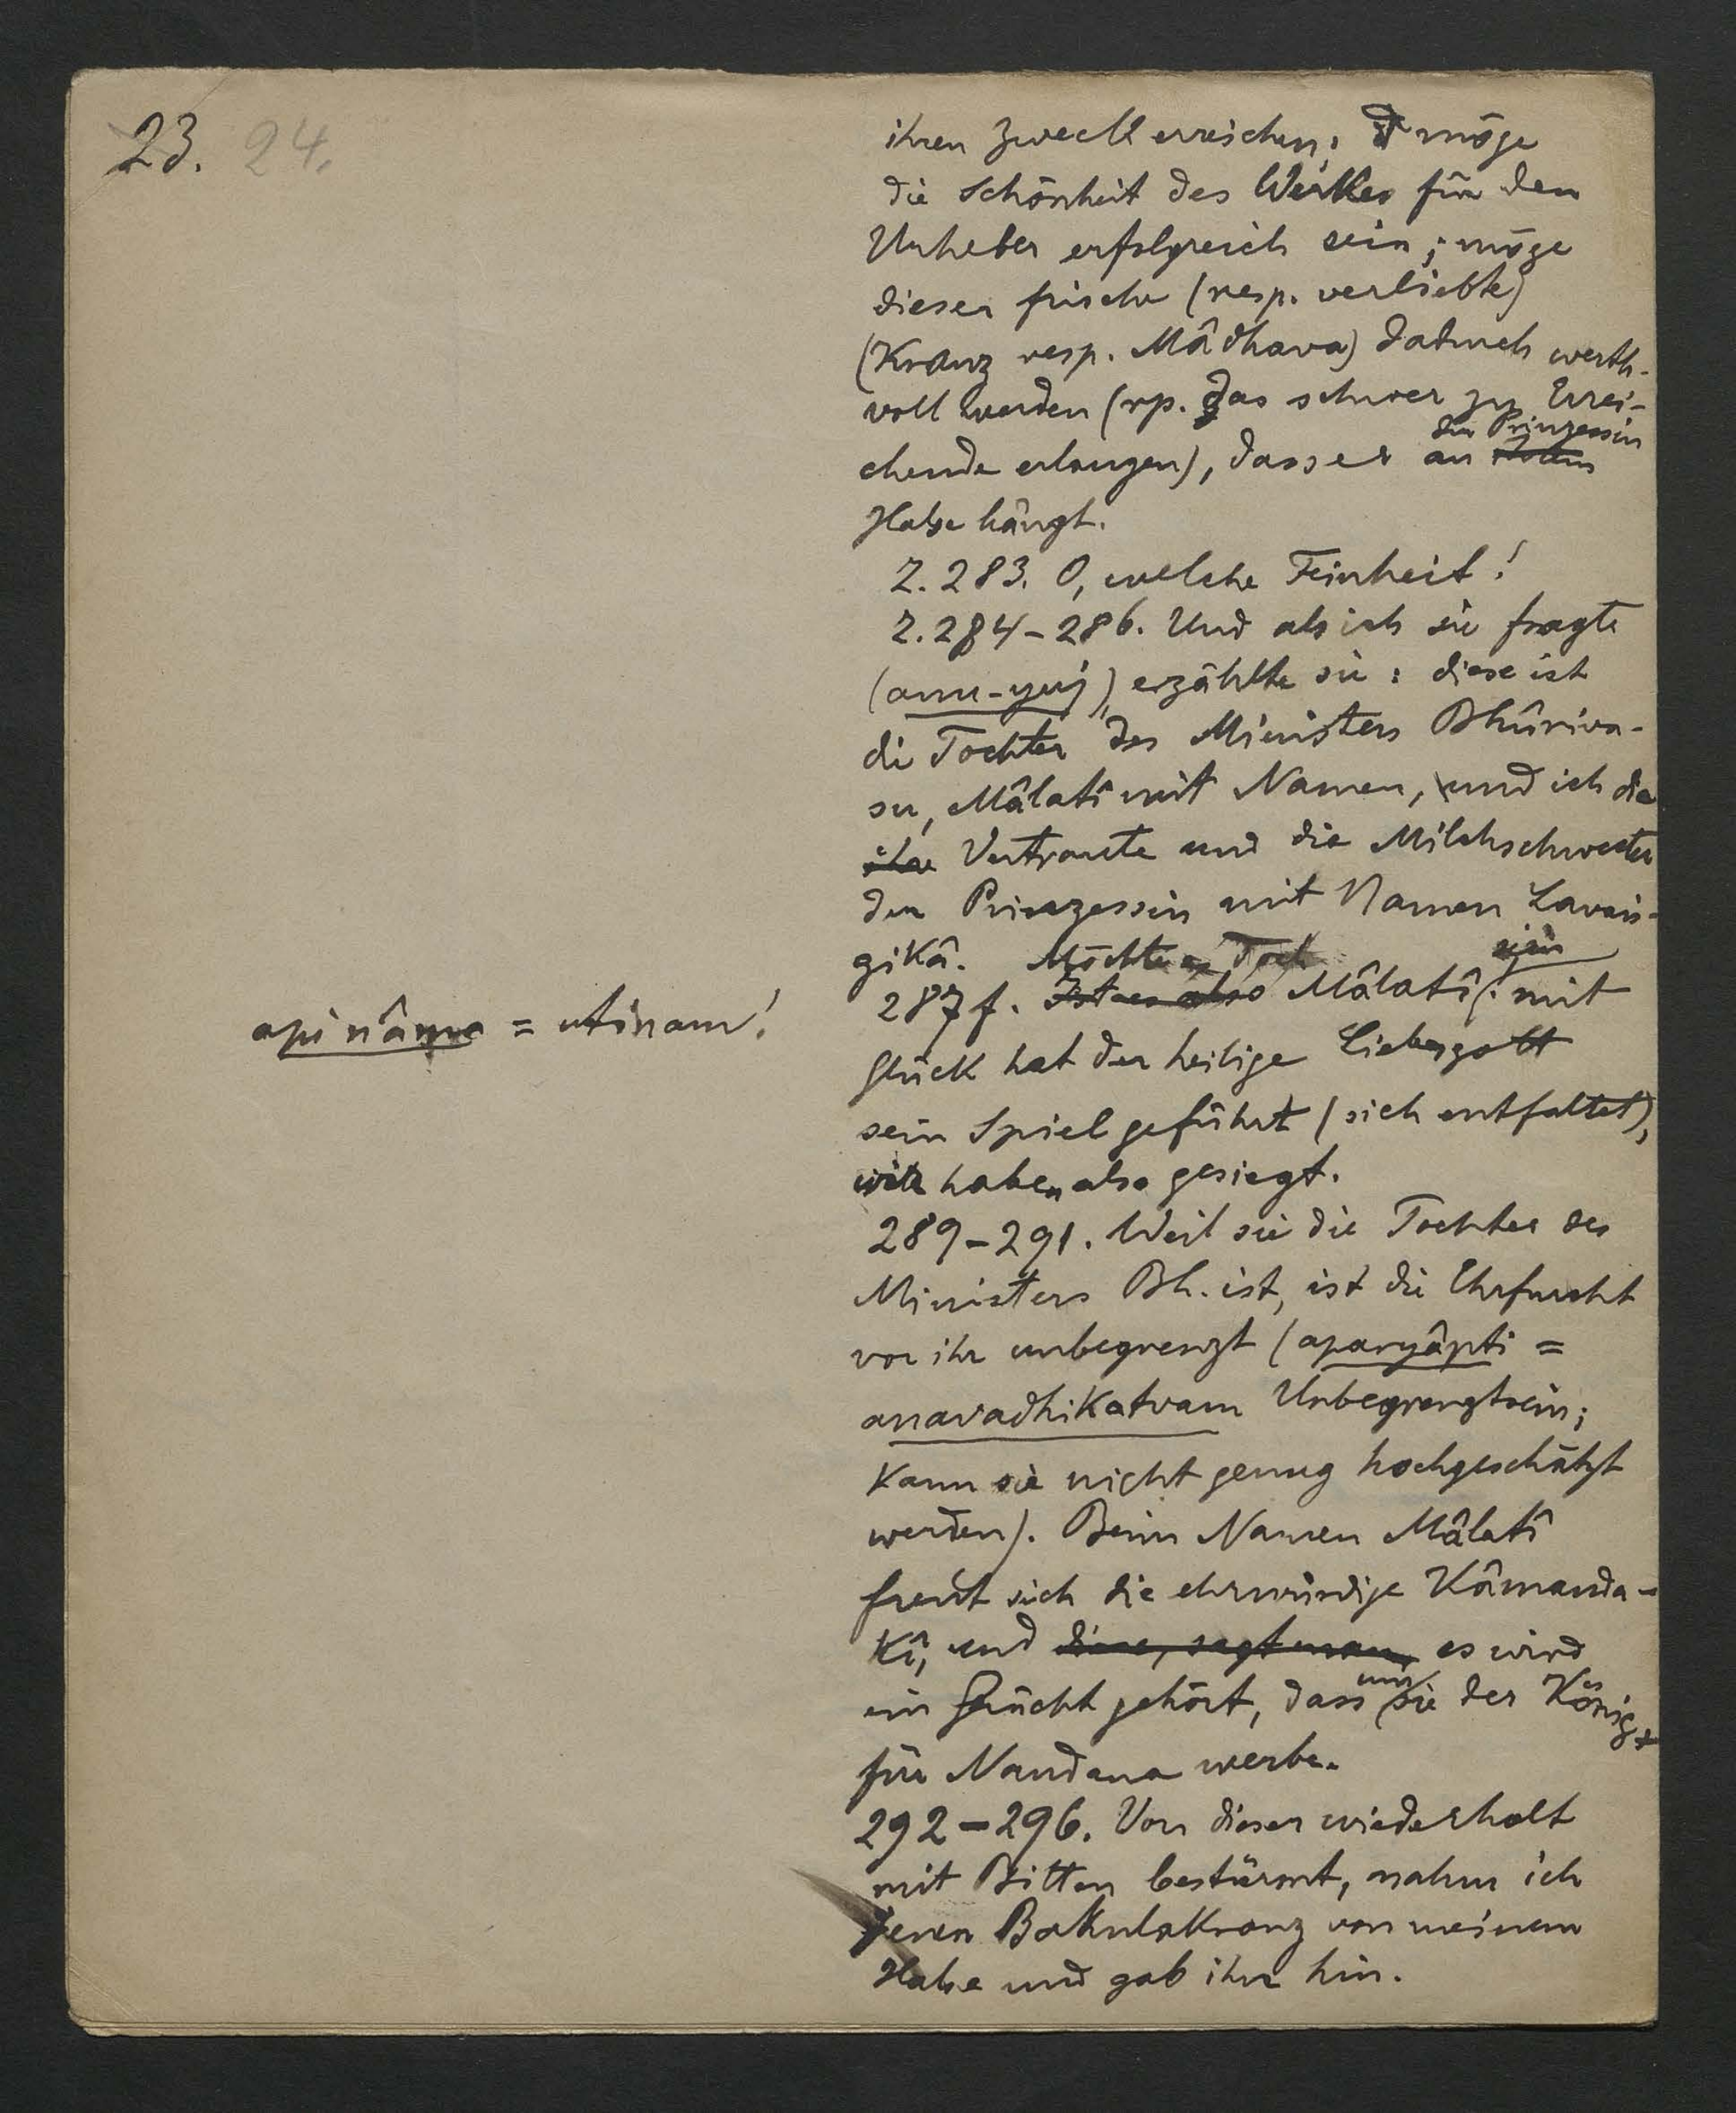 23. 24.
ihren Zweck erreichen; möge
die Schönheit des Werkes für den
Urheber erfolgreich sein; möge
dieser frische (resp. verliebte)
(Kranz resp. Mâdhava) dadurch werth-
voll werden (rp. das schwer zu Errei-
der Prinzessin
chende erlangen), dass er an
Halse hängt.
Z. 283. O, welche Feinheit!
Z. 284-286. Und als ich sie fragte
(anu-yuj), erzählte sie: diese ist
die Tochter des Ministers Bhûriva-
su, Mâlatî mit Namen, und ich die
ihre Vertraute und die Milchschwester
der Prinzessin mit Namen Lavaṅ-
gikâ. Möchte es doch sein
287 f. Ist es also Mâlatî: mit
api nâma = utinam!
Glück hat der heilige Liebesgott
sein Spiel geführt (sich entfaltet),
wir haben also gesiegt.
289-291. Weil sie die Tochter des
Ministers Bh. ist, ist die Ehrfurcht
vor ihr unbegrenzt (aparyâpti =
anavadhikatvam Unbegrenztsein;
kann sie nicht genug hochgeschätzt
werden). Beim Namen Mâlatî
freut sich die ehrwürdige Kâmanda-
kî, und diese, sagt man, es wird
ein Grücht gehört, dass um sie der König
für Nandana werbe.
292-296. Von dieser wiederholt
mit Bitten bestürmt, nahm ich
jenen Bakulakranz von meinem
Halse und gab ihr hin.